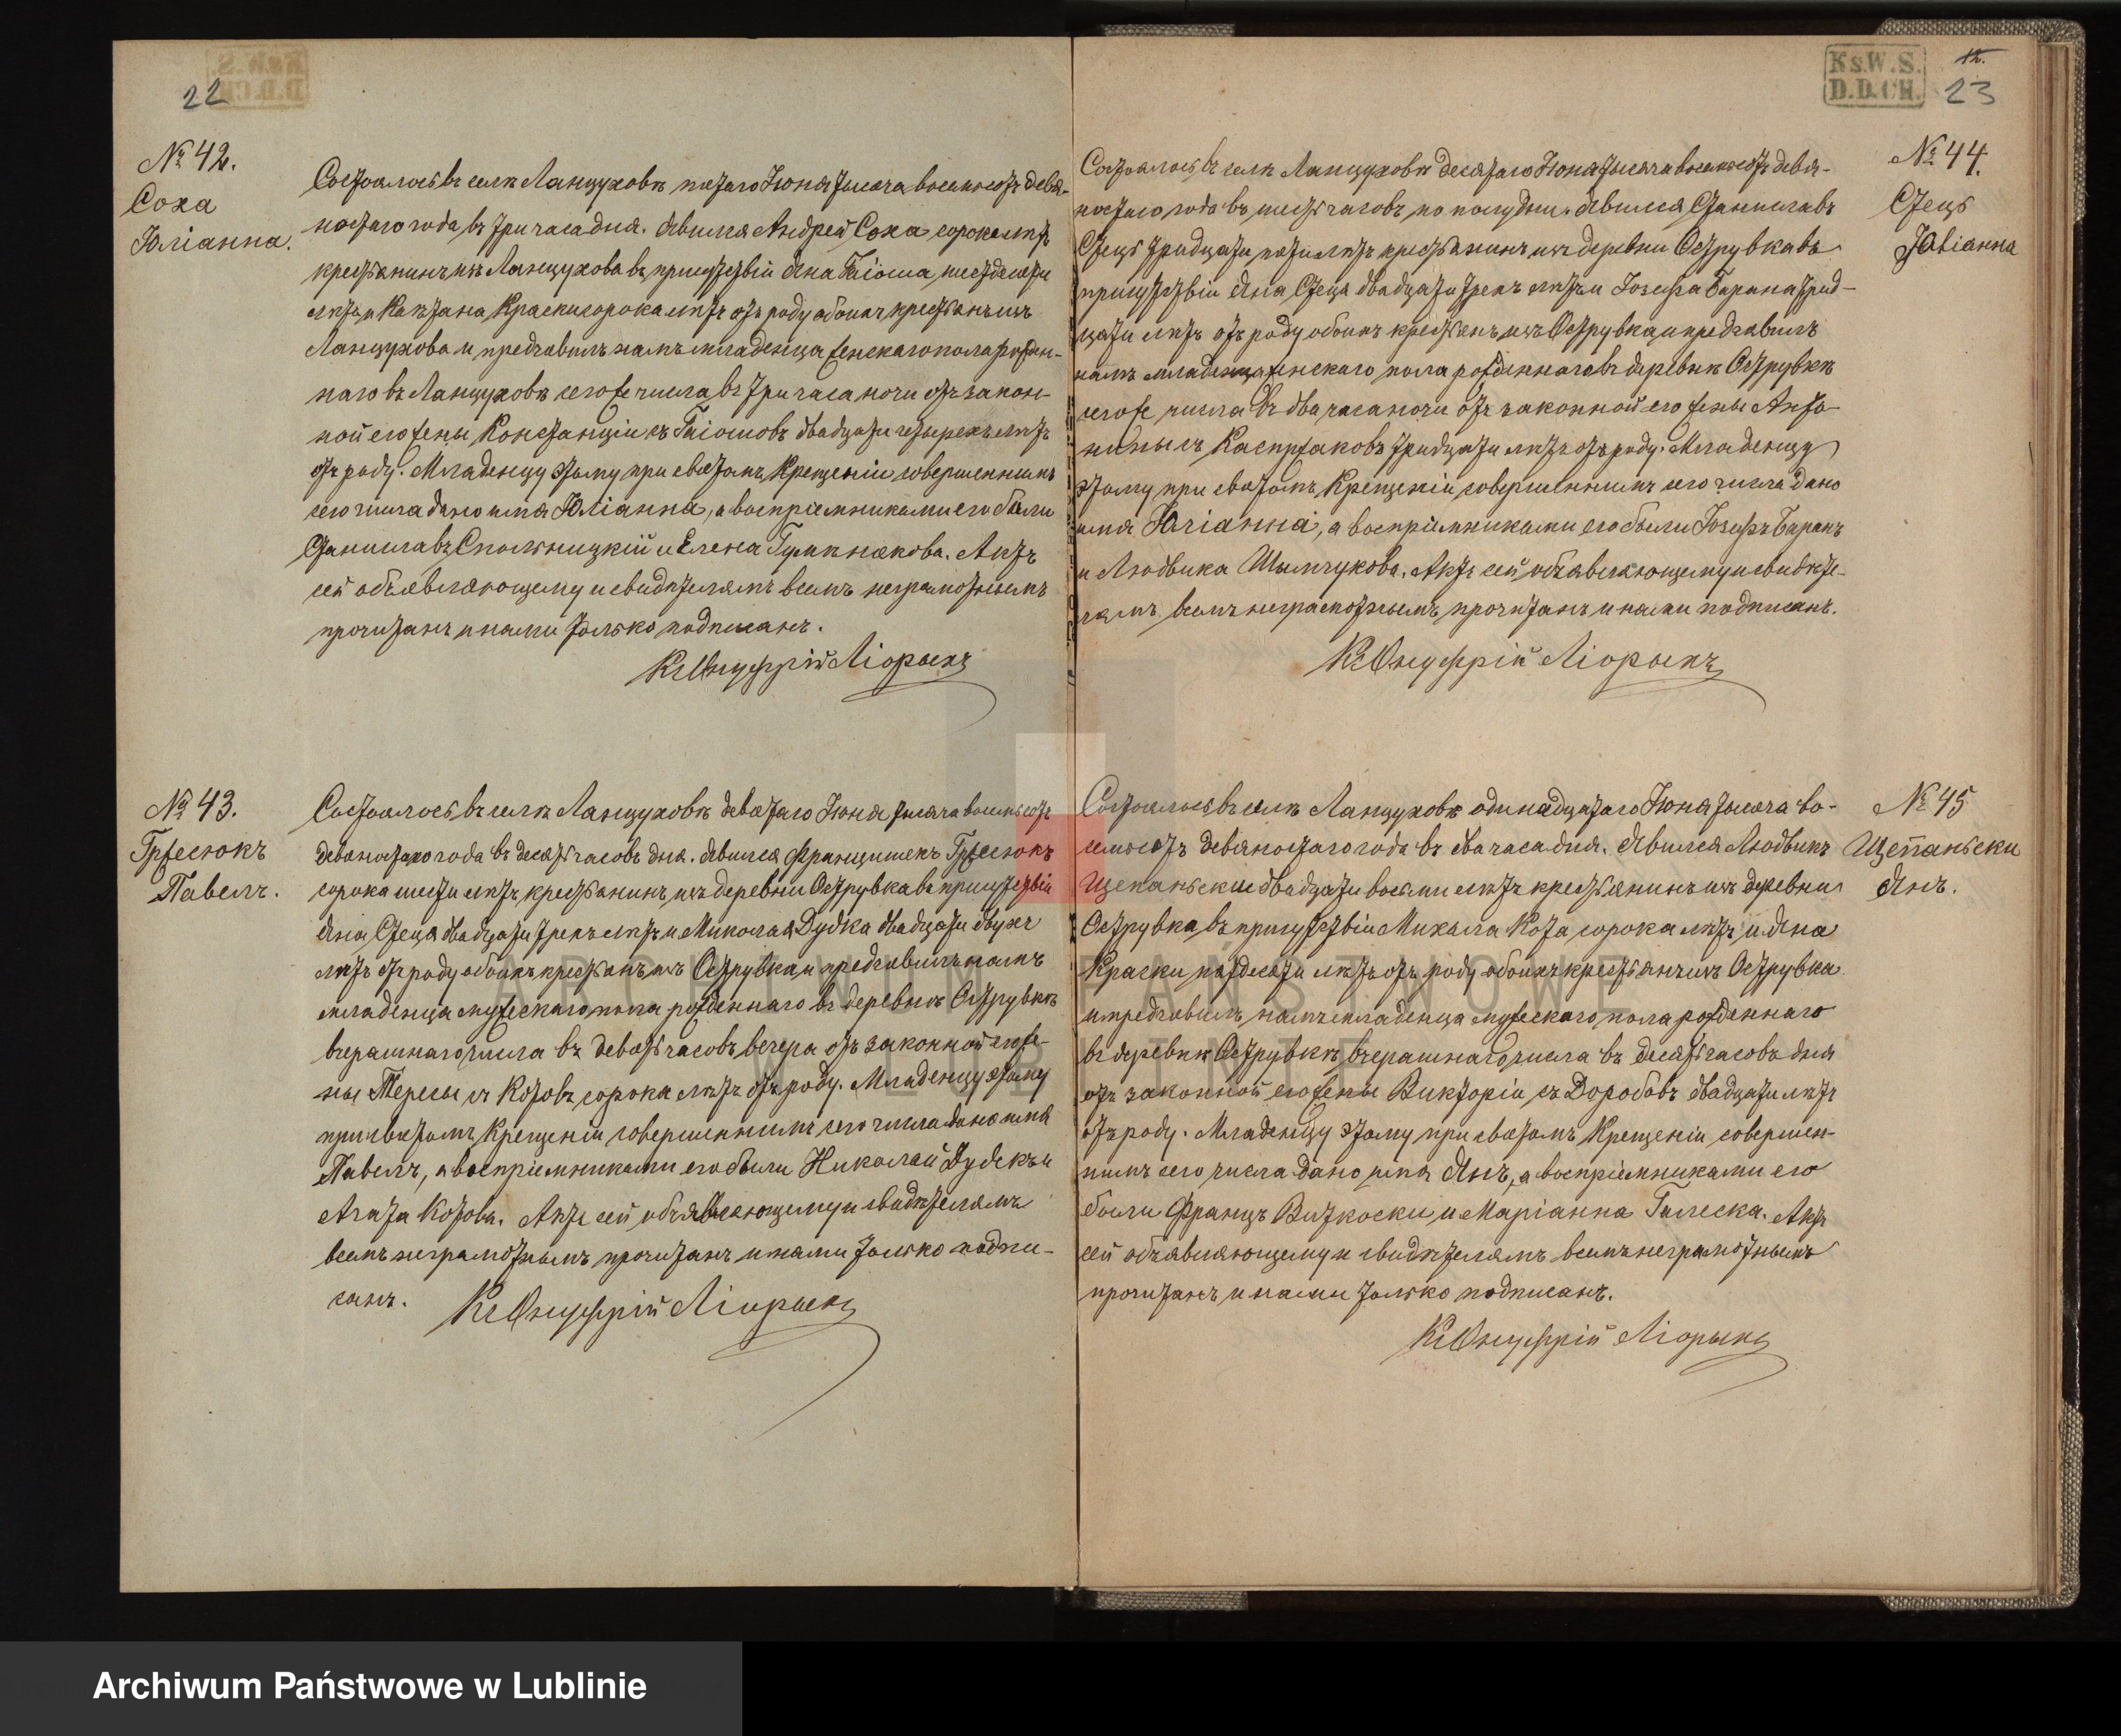 22
№ 42.
Соха
Юліанна.
Состоялось въ селѣ Ланцуховѣ пятаго Іюня тысяча восемьсотъ девя-
ностаго года, въ три часа дня. Явился Андрей Соха сорока лѣтъ
крестьянинъ изъ Ланцухова въ присутствіи Яна Гаіоша шестдесяти
лѣтъ и Каэтана Краски сорока лѣтъ отъ роду обоихъ крестьянъ изъ
Ланцухова и предъявилъ намъ младенца женскаго пола рожден-
наго въ Ланцуховѣ сегоже числа въ три часа ночи отъ закон-
ной его жены Констанціи съ Гаіошовъ двадцати четырехъ лѣтъ
отъ роду. Младенцу этому при святомъ Крещеніи совершенномъ
сего числа дано имя Юліанна, а воспріемниками его были
Станиславъ Спольницкій и Елена Гуменякова. Актъ
сей объявляющему и свидѣтелямъ всемъ неграмотнымъ
прочитанъ и нами только подписанъ.
Кс Онуфрій Ліорыкъ
№ 43.
Гржесюкъ
Павелъ.
Состоялось въ селѣ Ланцуховѣ девятаго Іюня тысяча восемьсотъ
девяностаго года въ десять часовъ дня. Явился Францишекъ Гржесюкъ
сорока шести лѣтъ, крестьянинъ изъ деревни Острувка въ присутствіи
Яна Стеця двадцати трехъ лѣтъ и Миколая Дудка двадцати двухъ
лѣтъ отъ роду обоихъ крестьянъ изъ Острувка и предъявилъ намъ
младенца мужескаго пола рожденнаго въ деревнѣ Острувкѣ
вчерашнаго числа въ девять часовъ вечера отъ законной его же-
ны Тересы съ Котовъ сорока лѣтъ отъ роду. Младенцу этому
при святомъ Крещеніи совершенномъ сего числа дано имя
Павелъ, а воспріемниками его были Николай Дудекъ и
Агата Котова. Актъ сей объявляющему и свидѣтелямъ
всемъ неграмотнымъ прочитанъ и нами только подпи-
санъ.
Кс Онуфрій Ліорыкъ
Ks.W.S.
D.D.CH.
12.
23
№ 44.
Стець
Юліанна
Состоялось въ селѣ Ланцуховѣ десятаго Іюня тысяча восемьсотъ девя-
ностаго года въ шесть часовъ по полудни. Явился Станиславъ
Стець тридцати пяти лѣтъ крестьянинъ изъ деревни Острувка въ
присутствіи Яна Стеця двадцати трехъ лѣтъ и Іозефа Барана трид-
цати лѣтъ отъ роду обоихъ крестьянъ изъ Острувка и предъявилъ
намъ младенца женскаго пола рожденнаго въ деревнѣ Острувкѣ
сегоже числа въ два часа ночи отъ законной его жены Анто-
нины съ Каспржаковъ тридцати лѣтъ отъ роду. Младенцу
этому при святомъ Крещеніи совершенномъ сего числа дано
имя Юліанна, а воспріемниками его были Іозефъ Баранъ
и Людвика Шымчукова. Актъ сей объявляющему и свидѣте-
лямъ всемъ неграмотнымъ прочитанъ и нами подписанъ.
Кс Онуфрій Ліорыкъ
№ 45
Щепаньски
Янъ.
Состоялось въ селѣ Ланцуховѣ одинадцатаго Іюня тысяча во-
семьсотъ девяностаго года въ два часа дня. Явился Людвикъ
Щепаньски двадцати восьми лѣтъ крестьянинъ изъ деревни
Острувка въ присутствіи Михала Кота сорока лѣтъ и Яна
Краски пятдесяти лѣтъ отъ роду обоихъ крестьянъ изъ Острувка
и предъявилъ намъ младенца мужескаго пола рожденнаго
въ деревнѣ Острувкѣ вчерашнаго числа въ десять часовъ дня
отъ законной его жены Викторіи съ Доробовъ двадцати лѣтъ
отъ роду. Младенцу этому при святомъ Крещеніи совершен-
номъ сего числа дано имя Янъ, а воспріемниками его
были Францъ Виткоски и Маріанна Галеска. Актъ
сей объявляющему и свидѣтелямъ всемъ неграмотнымъ
прочитанъ и нами только подписанъ.
Кс Онуфрій Ліорыкъ
ARCHIWUM PAŃSTWOWE
W LUBLINIE
Archiwum Państwowe w Lublinie